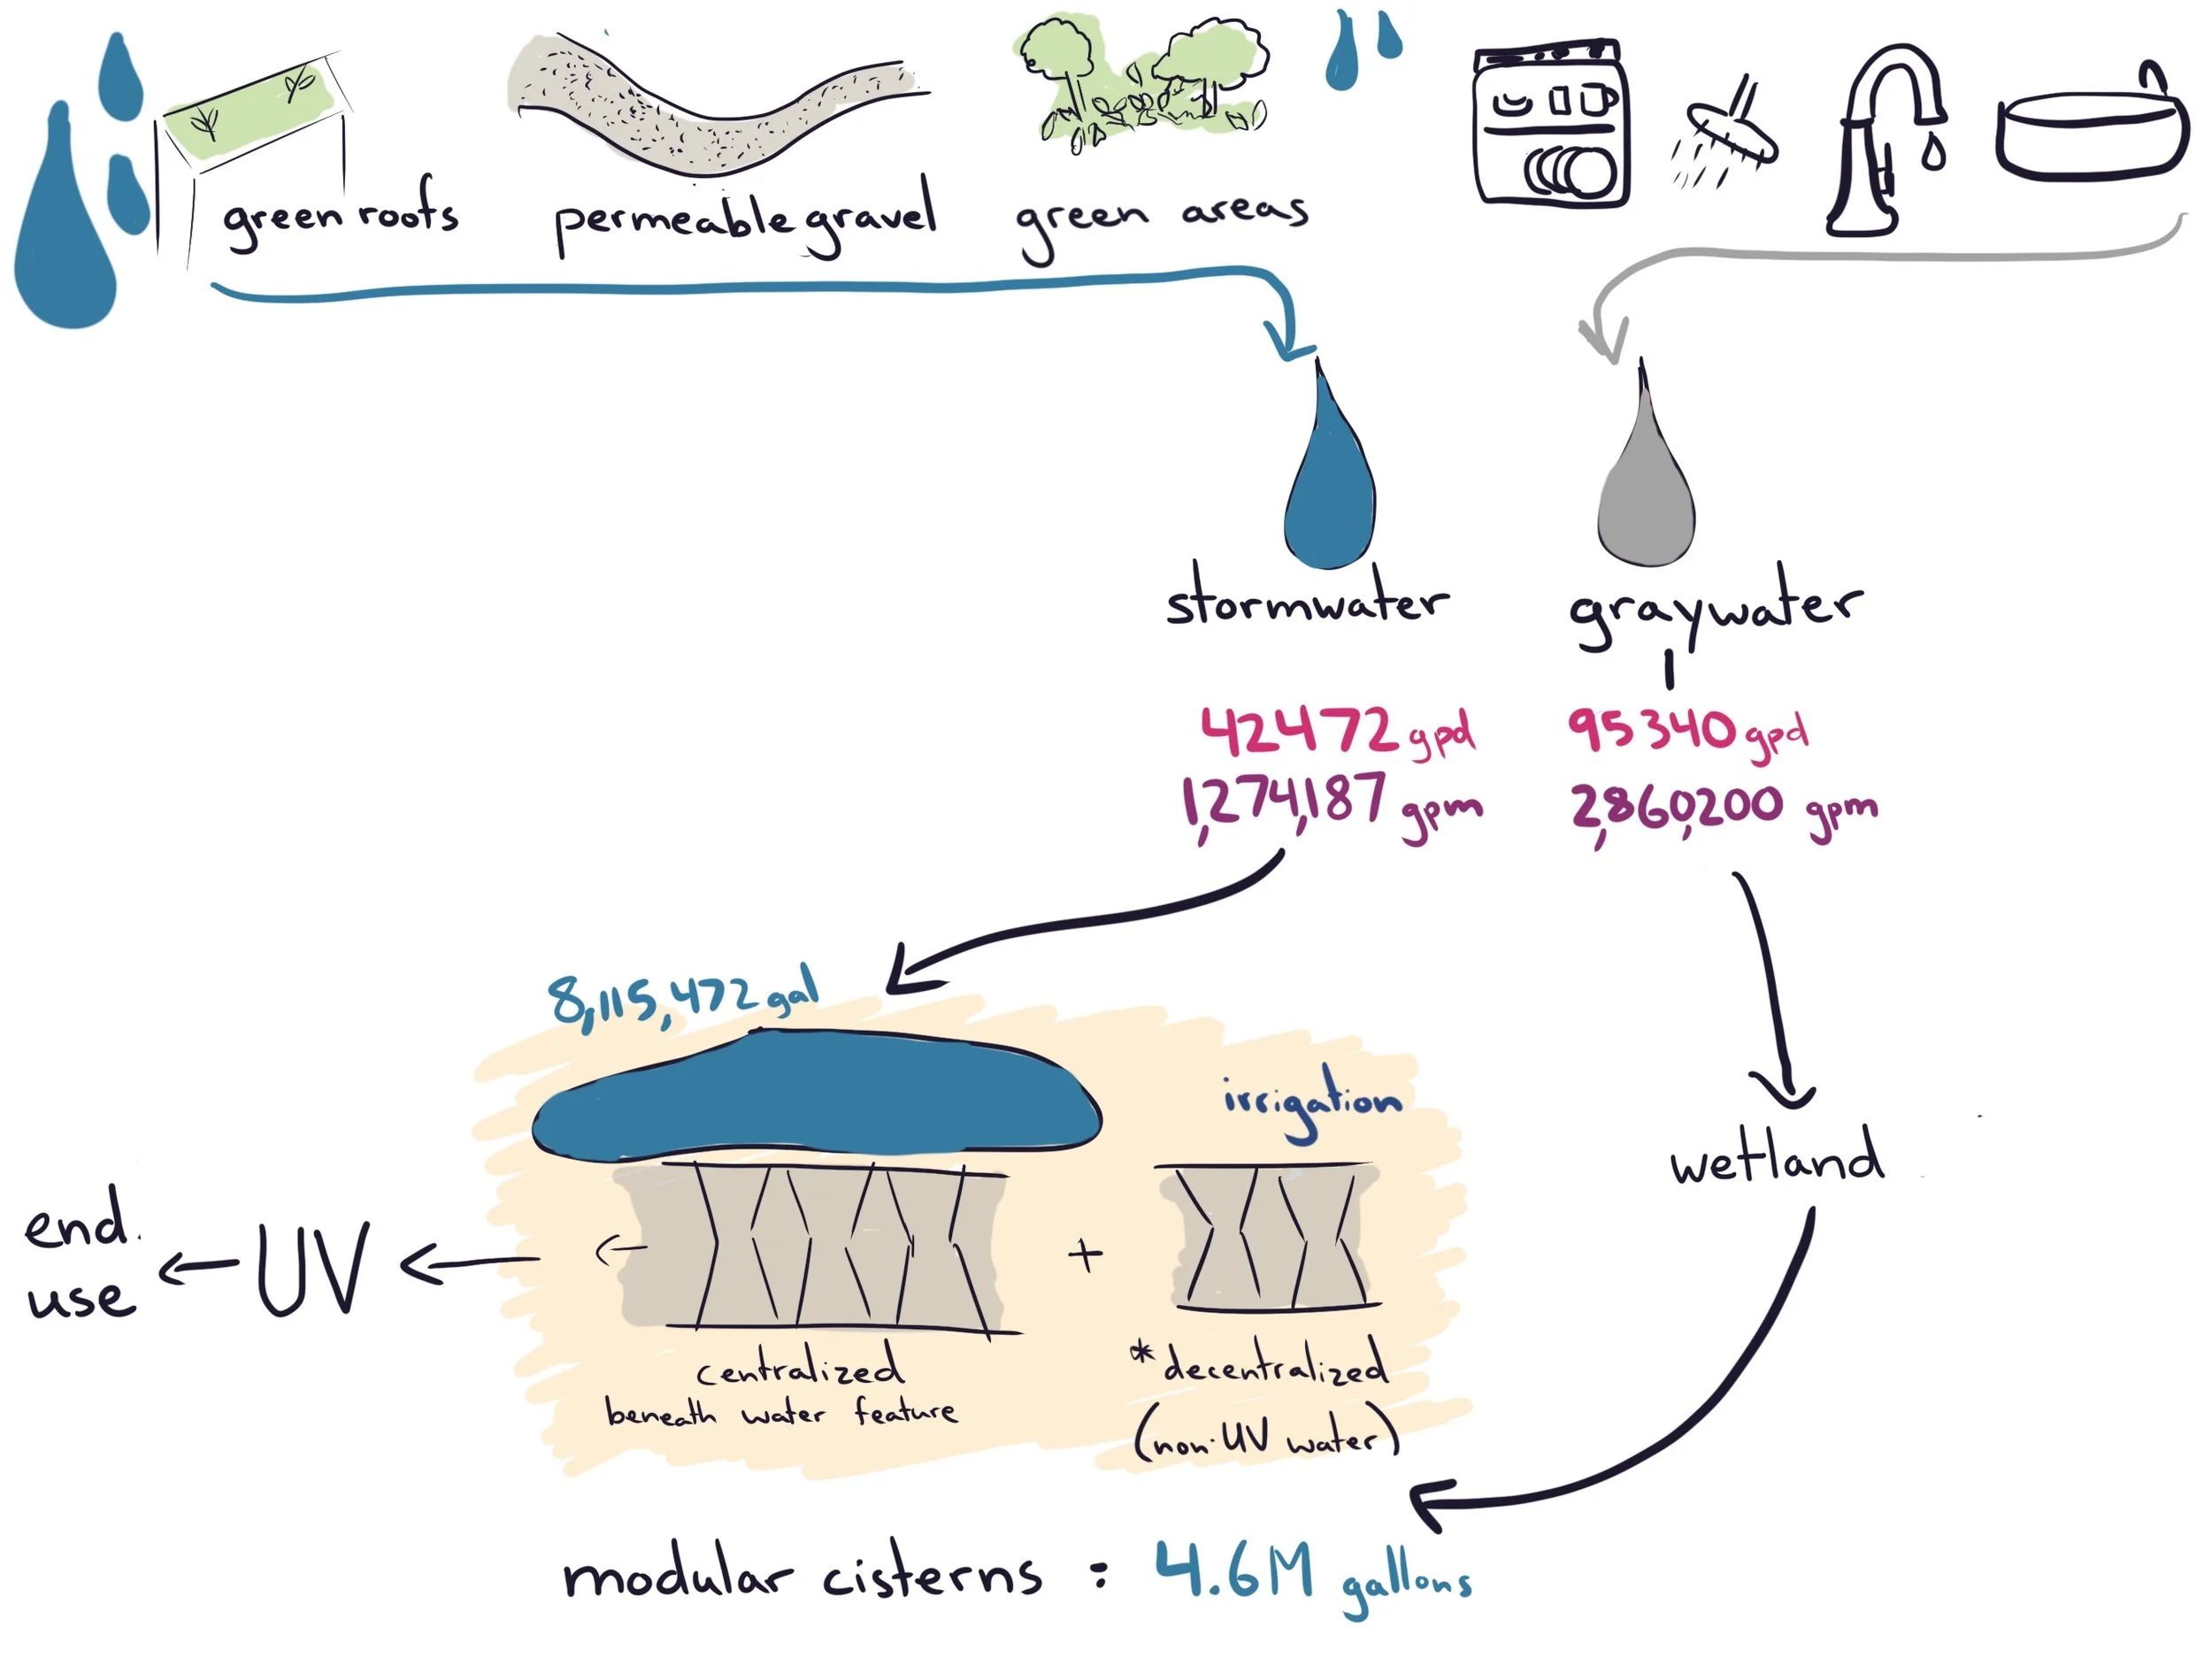 green roofs
permeable gravel
green areas
stormwater
graywater
42472 gpd
95340 gpd
1,274,187 gpm
2,860,200 gpm
8,115,472 gal
irrigation
wetland
end
use
UV
+
centralized
beneath water feature
*decentralized
(non-UV water)
modular cisterns : 4.6M gallons